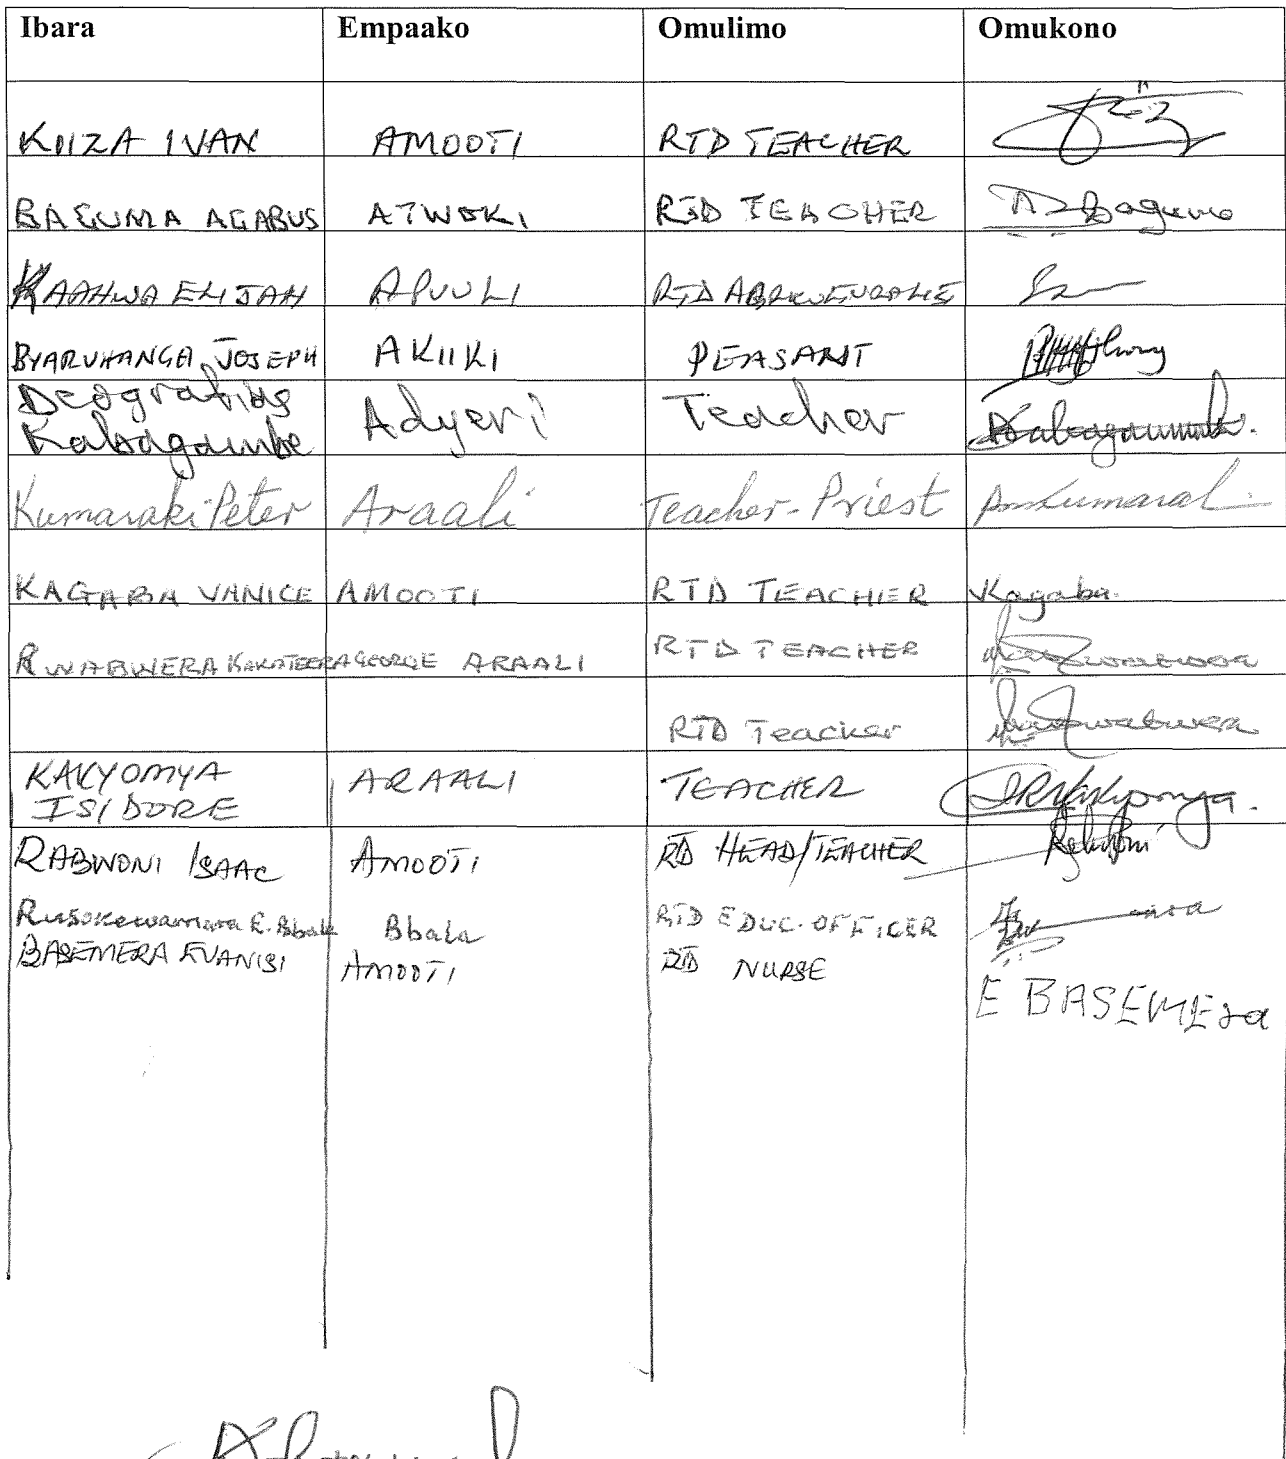 Ibara Empaako Omulimo Omukono
KIIZA IVAN AMOOTI RTD TEACHER
BAGUMA AGABUS ATWOKI RTD TEACHER Baguma
KAAHWA ELIJAH APUULI RTD
BYARUHANGA JOSEPH AKIIKI PEASANT
Deogratias
Kabagambe Adyeri Teacher
Kumaraki Peter Araali Teacher-Priest
KAGABA VANICE AMOOTI RTD TEACHER Kagaba.
RWABWERA KAKATEERA GEORGE ARAALI RTD TEACHER
RTD Teacher
KAVYOMYA
ISIDORE ARAALI TEACHER
RABWONI ISAAC AMOOTI RTD HEAD/TEACHER
Rusokewamara E. Bbala Bbala RTD EDUC. OFFICER
BASEMERA EVANISI AMOOTI RTD NURSE
E BASEMEra